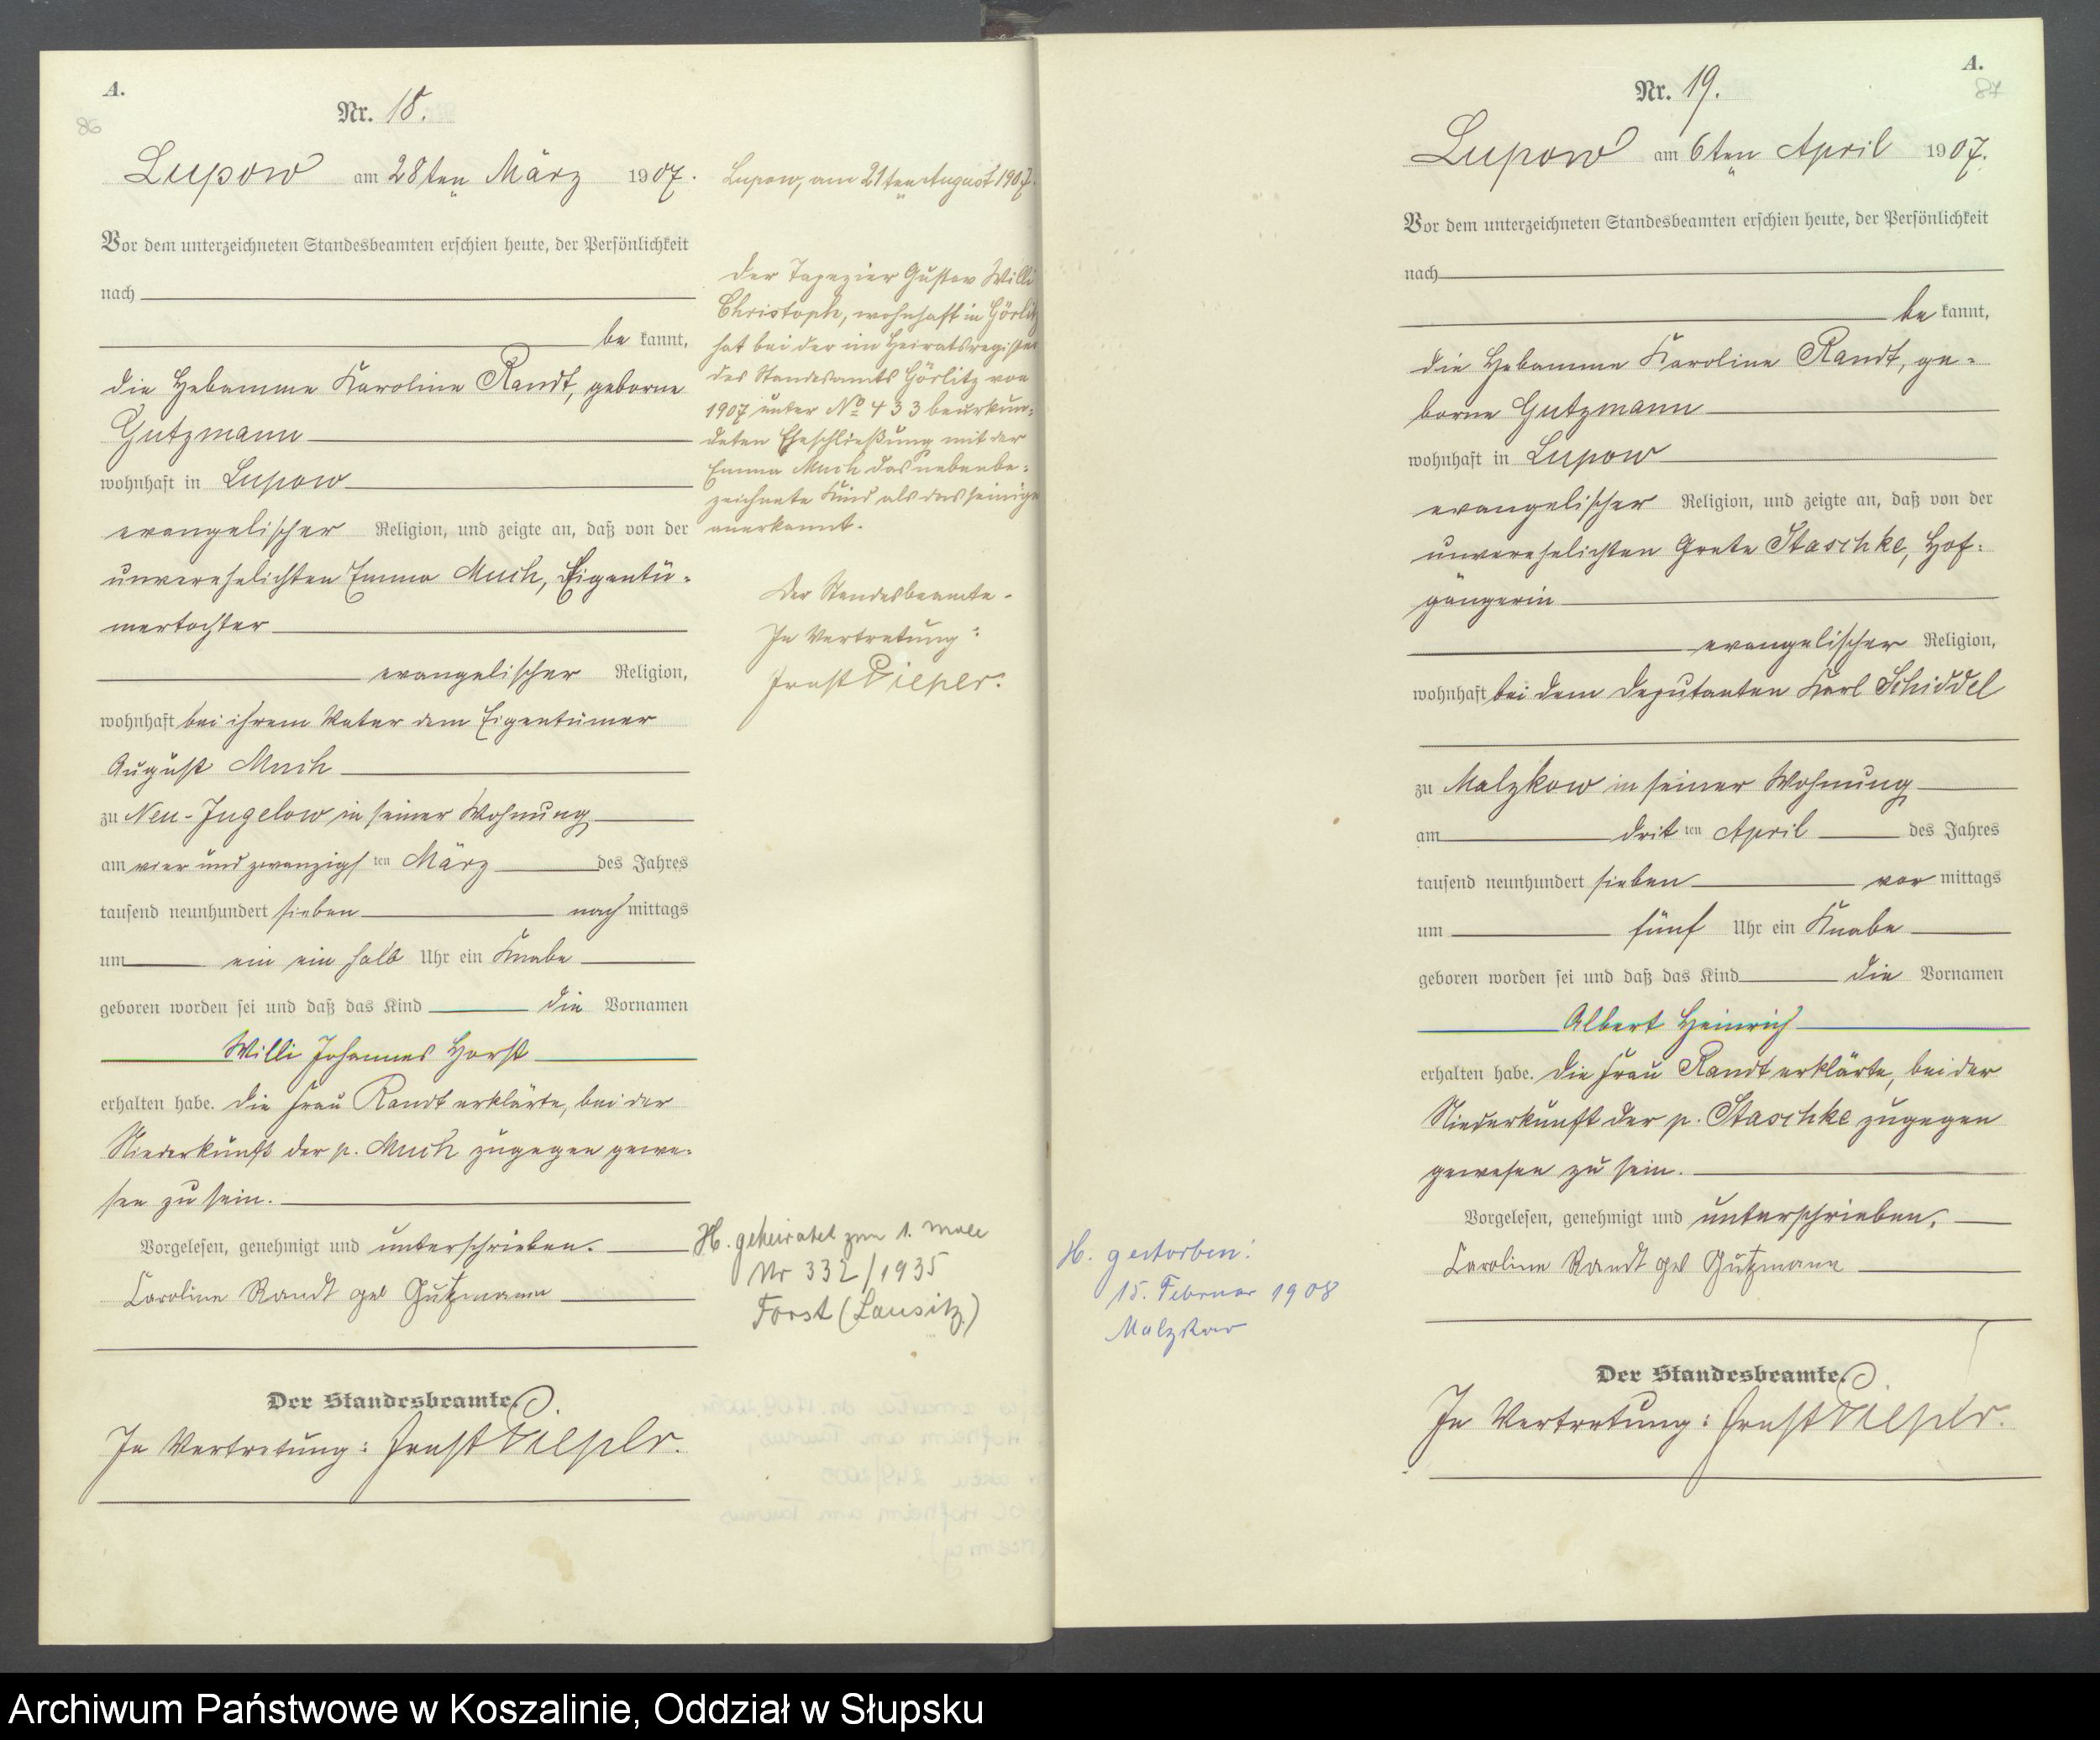 A.
86
Nr. 18.
Lupow am 28ten März 1907.
Vor dem unterzeichneten Standesbeamten erschien heute, der Persönlichkeit
nach
be kannt,
die Hebamme Karoline Randt, geborne
Gutzmann
wohnhaft in Lupow
evangelischer Religion, und zeigte an, daß von der
unverehelichten Emma Much, Eigentü-
mertochter
evangelischer Religion,
wohnhaft bei ihrem Vater dem Eigentümer
August Much
zu Neu-Jugelow in seiner Wohnung
am vier und zwanzigsten März des Jahres
tausend neunhundert sieben nach mittags
um ein ein halb Uhr ein Knabe
geboren worden sei und daß das Kind die Vornamen
Willi Johannes Horst
erhalten habe. Die Frau Randt erklärte, bei der
Niederkunft der p. Much zugegen gewe-
sen zu sein.
Vorgelesen, genehmigt und unterschrieben.
Caroline Randt geb Gutzmann
Der Standesbeamte.
In Vertretung: Ernst Pieper.
Lupow, am 21ten August 1907.
Der Tapezier Gustav Willi
Christoph, wohnhaft in Görlitz
hat bei der im Heiratsregister
des Standesamts Görlitz von
1907 unter No 433 beurkun-
deten Eheschließung mit der
Emma Much das nebenbe-
zeichnete Kind als das seinige
anerkannt.
Der Standesbeamte.
In Vertretung:
Ernst Pieper.
H. geheiratet zum 1. male
Nr 332/1935
Forst (Lausitz)
A.
87
Nr. 19.
Lupow am 6ten April 1907.
Vor dem unterzeichneten Standesbeamten erschien heute, der Persönlichkeit
nach
be kannt,
die Hebamme Karoline Randt, ge-
borne Gutzmann
wohnhaft in Lupow
evangelischer Religion, und zeigte an, daß von der
unverehelichten Grete Staschke, Hof-
gängerin
evangelischer Religion,
wohnhaft bei dem Deputanten Karl Schiddel
zu Malzkow in seiner Wohnung
am dritten April des Jahres
tausend neunhundert sieben vor mittags
um fünf Uhr ein Knabe
geboren worden sei und daß das Kind die Vornamen
Albert Heinrich
erhalten habe. Die Frau Randt erklärte, bei der
Niederkunft der p. Staschke zugegen
gewesen zu sein.
Vorgelesen, genehmigt und unterschrieben.
Caroline Randt geb Gutzmann
Der Standesbeamte.
In Vertretung: Ernst Pieper.
H. gestorben:
15. Februar 1908
Malzkow
Archiwum Państwowe w Koszalinie, Oddział w Słupsku